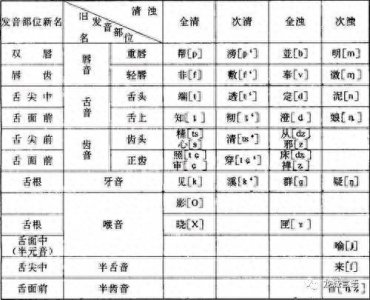 发音部位新名 旧名 发音部位 清浊 全清 次清 全浊 次浊
双唇 唇音 重唇 帮[p] 滂[p‘] 並[b] 明[m]
唇齿 轻唇 非[f] 敷[f‘] 奉[v] 微[ɱ]
舌尖中 舌音 舌头 端[t] 透[t‘] 定[d] 泥[n]
舌面前 舌上 知[ȶ] 彻[ȶ‘] 澄[ȡ] 娘[ȵ]
舌尖前 齿音 齿头 精[ts] 心[s] 清[ts‘] 从[dz] 邪[z]
舌面前 正齿 照[tɕ] 审[ɕ] 穿[tɕ‘] 床[dʑ] 禅[ʑ]
舌根 牙音 见[k] 溪[k‘] 群[g] 疑[ŋ]
喉音 影[O]
舌根 晓[X] 匣[ɤ]
舌面中(半元音) 喻[j]
舌尖中 半舌音 来[l]
舌面前 半齿音